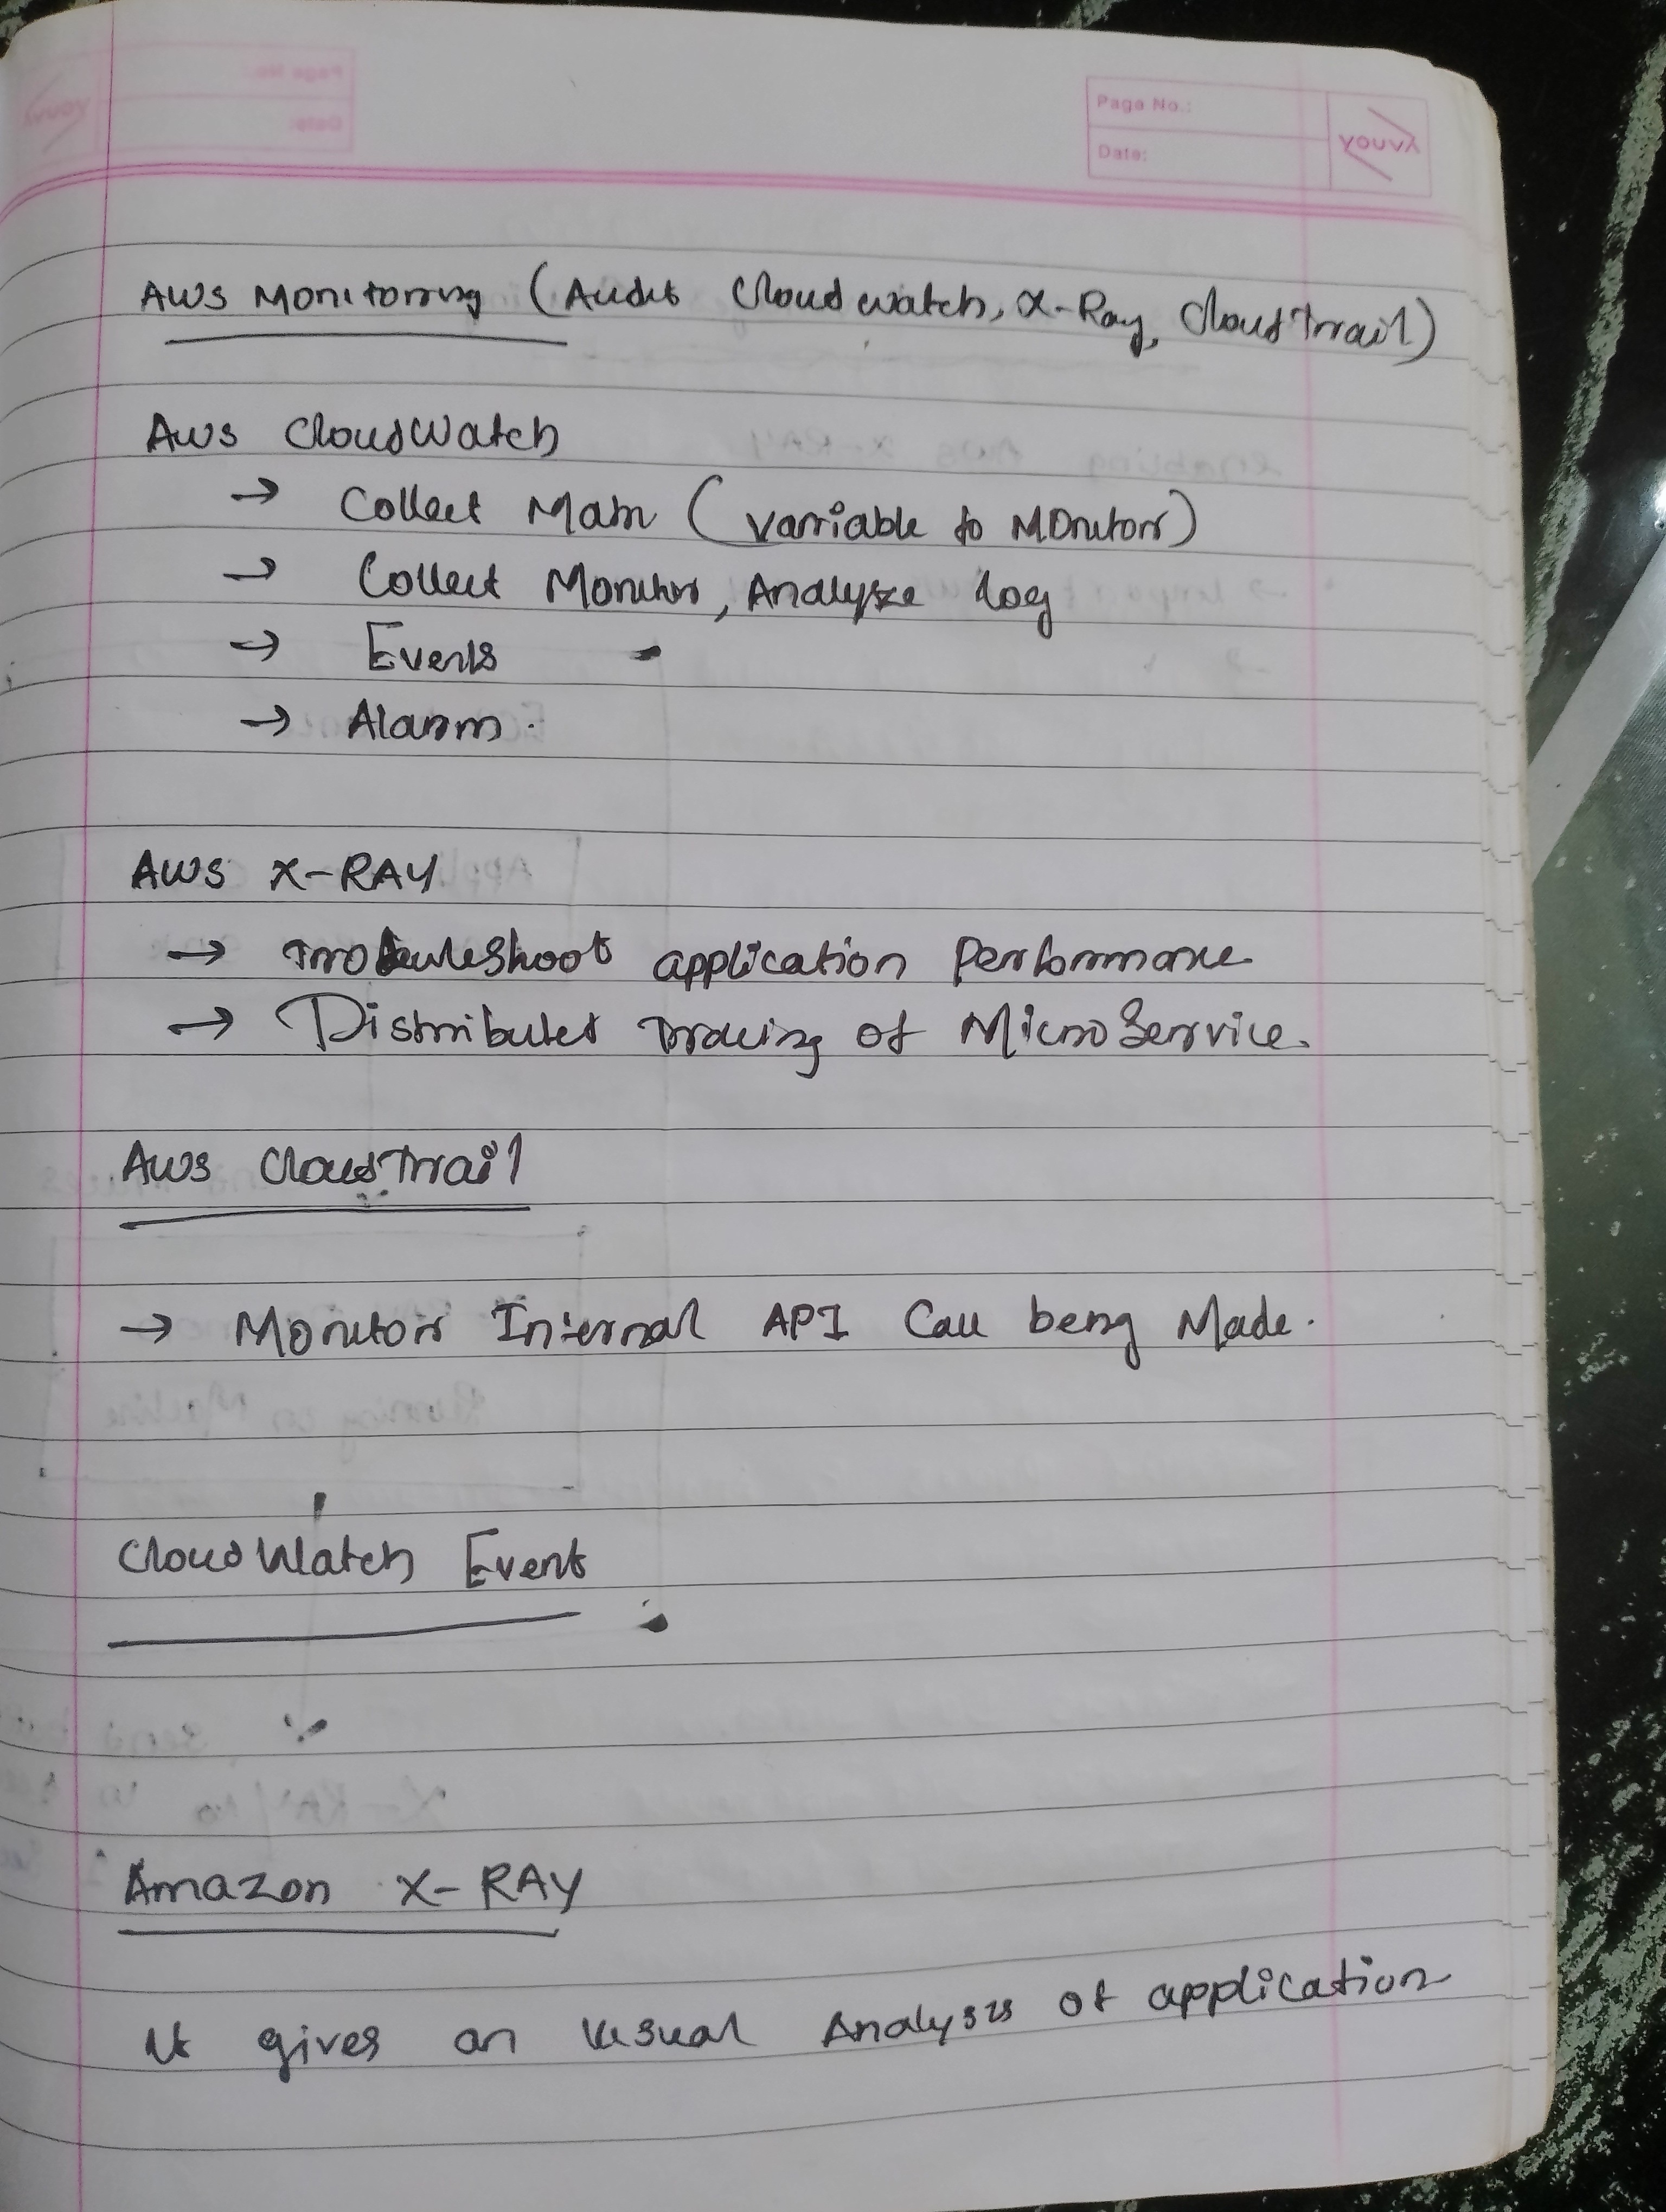 Page No.:
Date:
youva
AWS Monitoring (Audit Cloudwatch, X-Ray, CloudTrail)
Aws CloudWatch
→ Collect Matri (variable to Monitor)
→ Collect Monitor, Analyze log
→ Events
→ Alarm.
AWS X-RAY
→ Troubleshoot application Performance
→ Distributed Tracing of MicroService.
Aws CloudTrail
→ Monitor Internal API Call being Made.
CloudWatch Event
Amazon X-RAY
It gives an visual Analysis of application